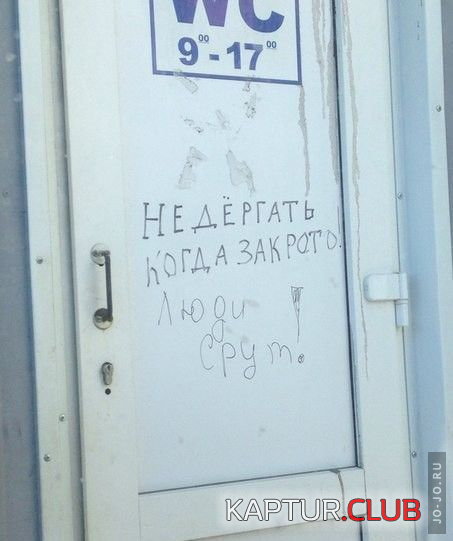 WC
9⁰⁰ - 17⁰⁰
НЕ ДЁРГАТЬ
КОГДА ЗАКРОТО!
Люди !
Срут.
KAPTUR.CLUB
JO-JO.RU